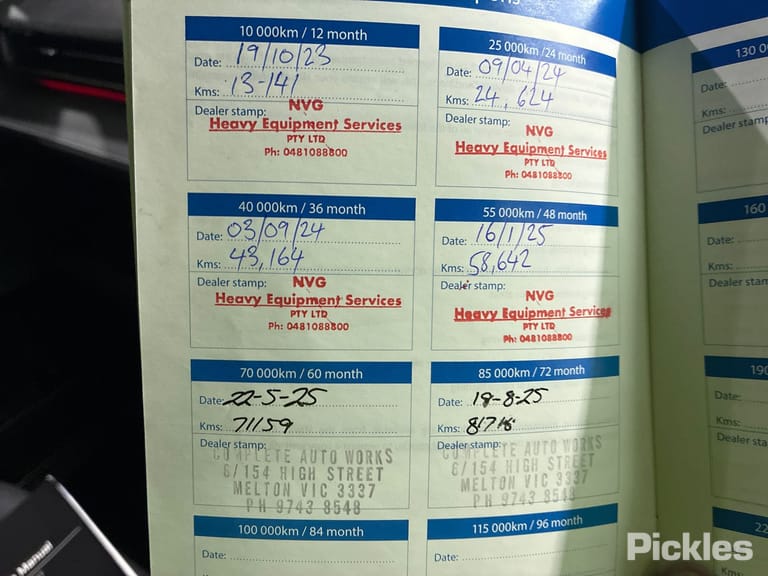 10 000km / 12 month
Date: 19/10/23
Kms: 13-141
Dealer stamp:
NVG
Heavy Equipment Services
PTY LTD
Ph: 0481088800
25 000km /24 month
Date: 09/04/24
Kms: 24,624
Dealer stamp:
NVG
Heavy Equipment Services
PTY LTD
Ph: 0481088800
40 000km / 36 month
Date: 03/09/24
Kms: 43,164
Dealer stamp:
NVG
Heavy Equipment Services
PTY LTD
Ph: 0481088800
55 000km / 48 month
Date: 16/1/25
Kms: 58,642
Dealer stamp:
NVG
Heavy Equipment Services
PTY LTD
Ph: 0481088800
70 000km / 60 month
Date: 22-5-25
Kms: 71159
Dealer stamp:
COMPLETE AUTO WORKS
6/154 HIGH STREET
MELTON VIC 3337
PH 9743 8548
85 000km / 72 month
Date: 18-8-25
Kms:
Dealer stamp:
COMPLETE AUTO WORKS
6/154 HIGH STREET
MELTON VIC 3337
PH 9743 8548
100 000km / 84 month
Date:
115 000km / 96 month
Date:
130 0
Date:
Kms:
Dealer stamp
160
Date:
Kms:
Dealer
190
Date:
Kms:
Dealer sta
22
Date:
Manual
Pickles